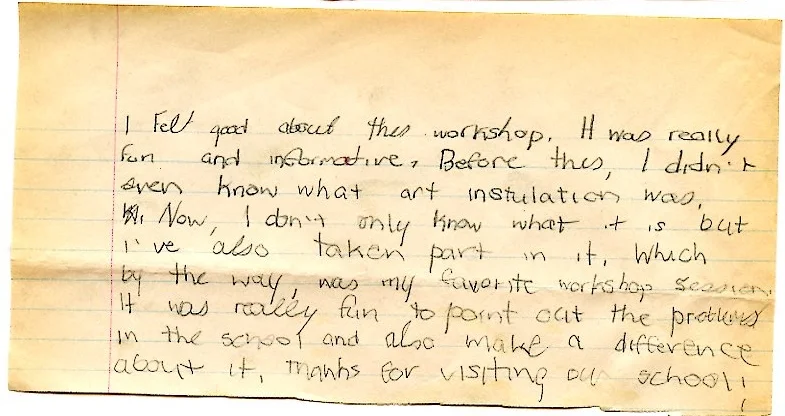 I Felt good about this workshop. It was really
fun and informative. Before this, I didn't
even know what art instulation was.
Now, I don't only know what it is but
I've also taken part in it. Which
by the way, was my favorite workshop session.
It was really fun to point out the problems
in the school and also make a difference
about it. Thanks for visiting our school!